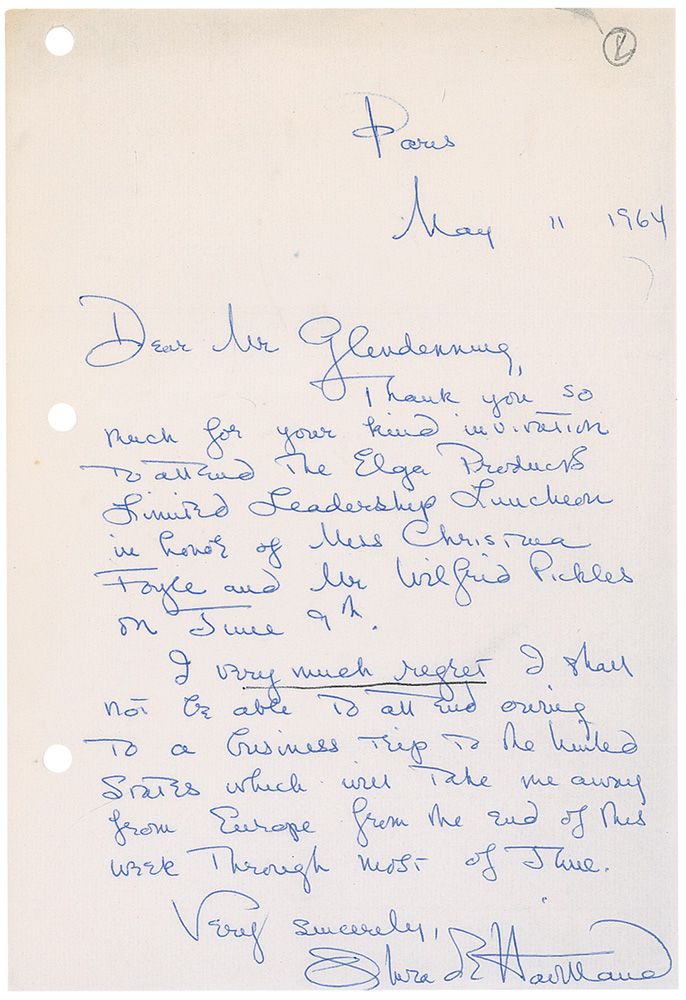 Paris
May 11 1964
Dear Mr Glendenning,
Thank you so
much for your kind invitation
to attend the Elga Products
Limited Leadership Luncheon
in honor of Miss Christina
Foyle and Mr Wilfrid Pickles
on June 9th.
I very much regret I shall
not be able to attend owing
to a business trip to the United
States which will take me away
from Europe from the end of this
week through most of June.
Very sincerely,
Olivia de Havilland